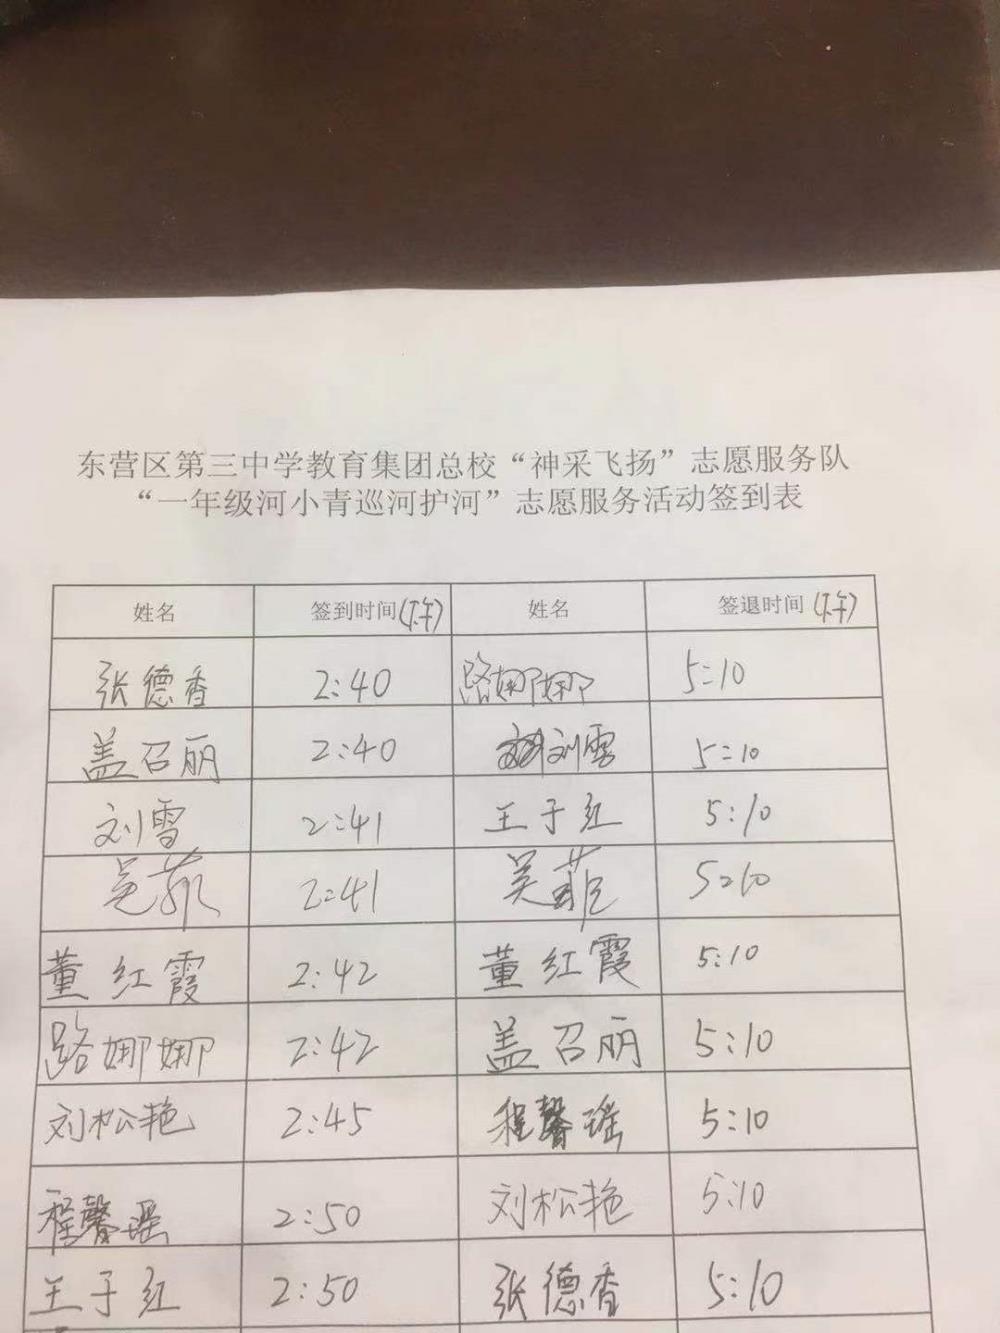 东营区第三中学教育集团总校“神采飞扬”志愿服务队
“一年级河小青巡河护河”志愿服务活动签到表
姓名 签到时间(下午) 姓名 签退时间(下午)
张德香 2:40 路娜娜 5:10
盖召丽 2:40 刘雪 5:10
刘雪 2:41 王于红 5:10
吴菲 2:41 吴菲 5:10
董红霞 2:42 董红霞 5:10
路娜娜 2:42 盖召丽 5:10
刘松艳 2:45 程馨瑶 5:10
程馨瑶 2:50 刘松艳 5:10
王于红 2:50 张德香 5:10